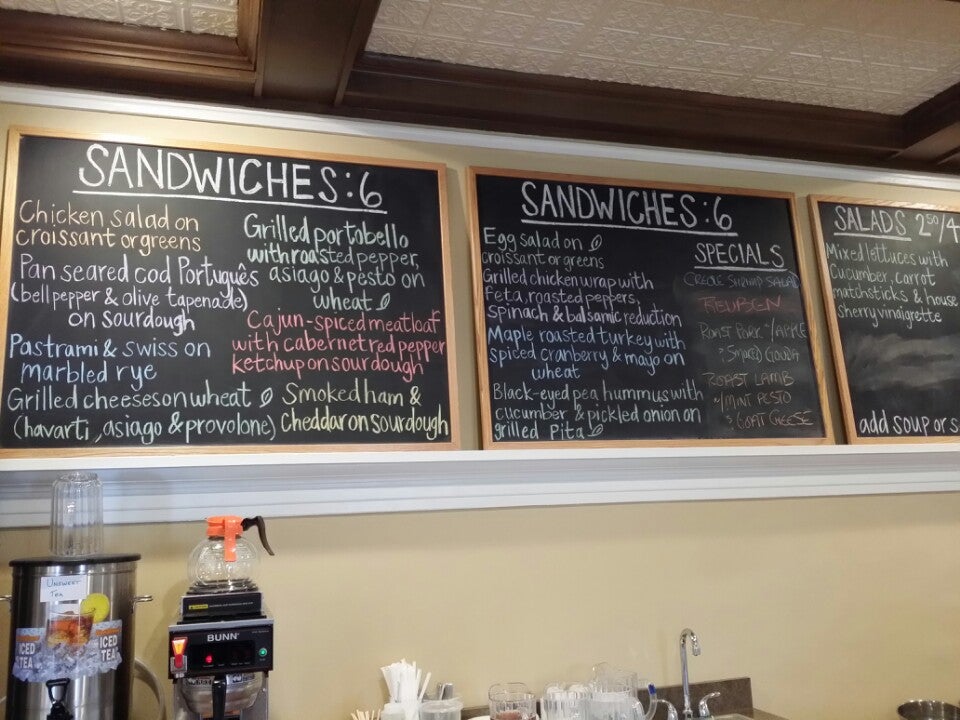 SANDWICHES: 6
Chicken salad on
croissant or greens
Pan seared cod Português
(bell pepper & olive tapenade)
on sourdough
Pastrami & swiss on
marbled rye
Grilled cheeses on wheat
(havarti, asiago & provolone)
Grilled portobello
with roasted pepper,
asiago & pesto on
wheat
Cajun-spiced meatloaf
with cabernet red pepper
ketchup on sourdough
Smoked ham &
Cheddar on sourdough
SANDWICHES: 6
Egg salad on
croissant or greens
Grilled chicken wrap with
feta, roasted peppers,
spinach & balsamic reduction
Maple roasted turkey with
spiced cranberry & mayo on
wheat
Black-eyed pea hummus with
cucumber & pickled onion on
grilled Pita
SPECIALS
CREOLE SHRIMP SALAD
REUBEN
ROAST PORK W/ APPLE
& SMOKED GOUDA
ROAST LAMB
W/ MINT PESTO
& GOAT CHEESE
SALADS 2.50/4
Mixed lettuces with
Cucumber, carrot
matchsticks & house
sherry vinaigrette
add soup or s
UNSWEET
TEA
ICED
TEA
ICED
TEA
BUNN